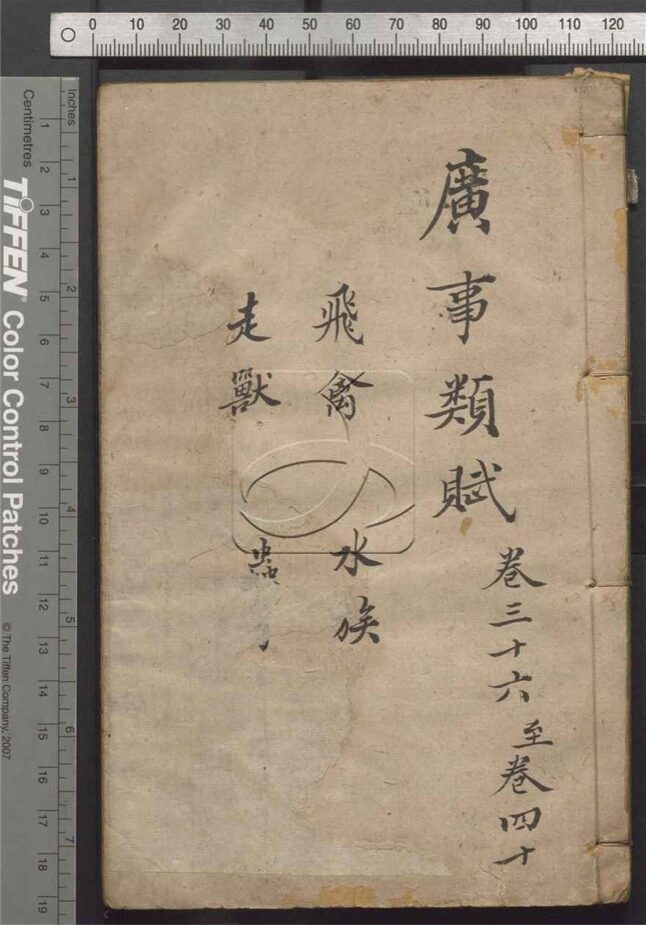 廣事類賦
卷三十六至卷四十
飛禽 水族
走獸 蟲
0 10 20 30 40 50 60 70 80 90 100 110 120
Inches
1 2 3 4 5 6 7
Centimetres
1 2 3 4 5 6 7 8 9 10 11 12 13 14 15 16 17 18 19
TIFFEN® Color Control Patches
© The Tiffen Company, 2007